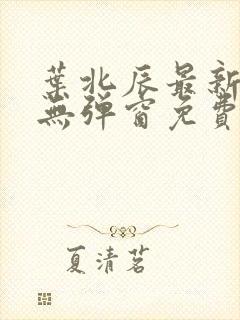 葉北辰最新
無弹窗免費
夏清茗